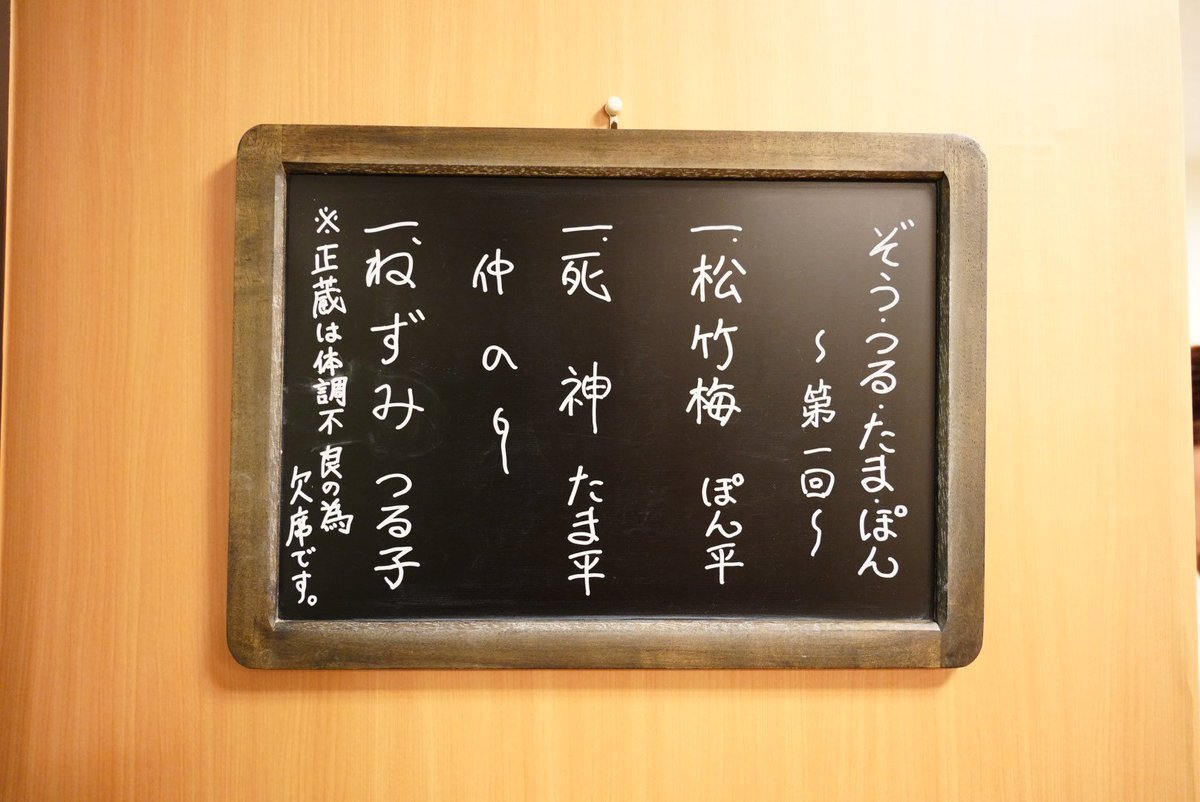 ぞう・つる・たま・ぽん
〜第一回〜
一.松竹梅 ぽん平
一.死神 たま平
仲の〜
一.ねずみ つる子
※正蔵は体調不良の為
欠席です。